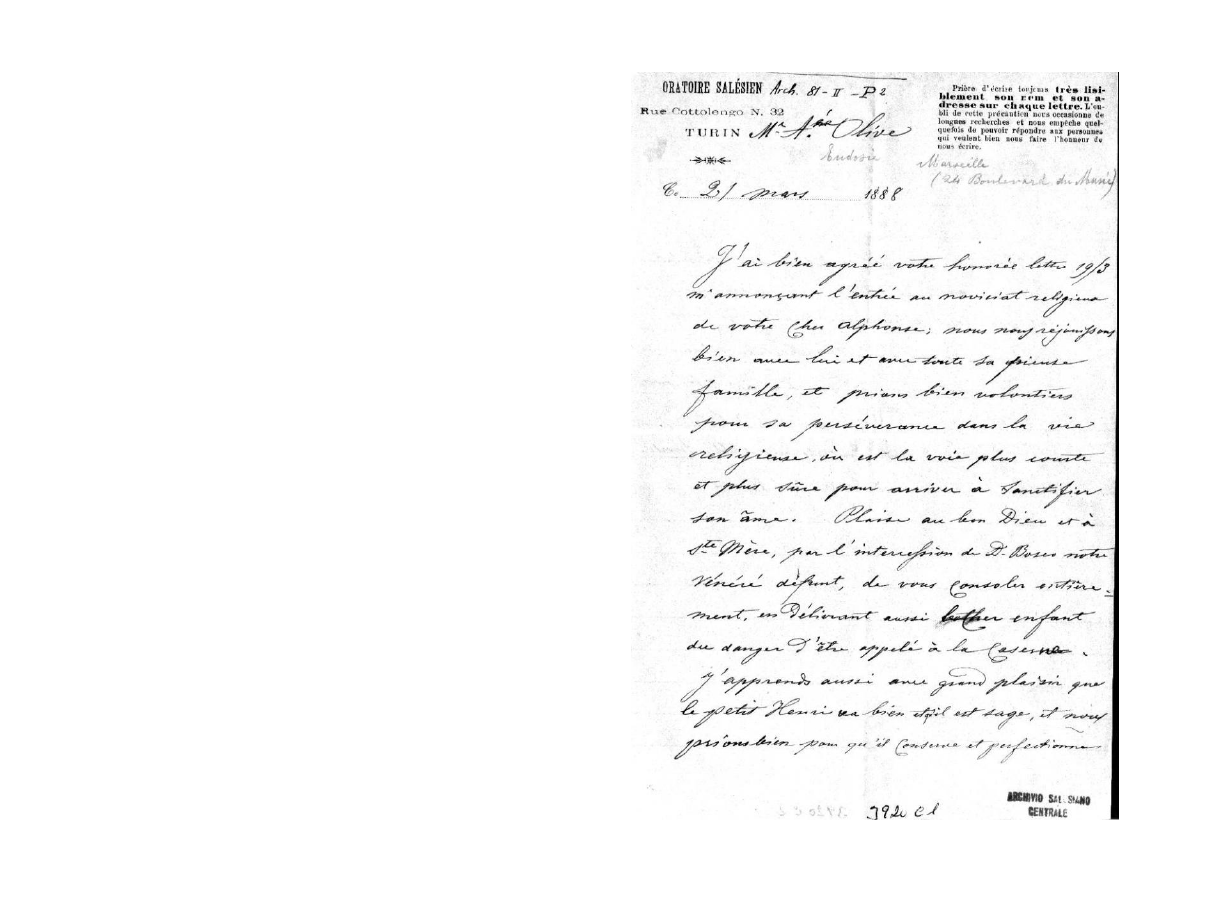 ORATOIRE SALÉSIEN Arch. 81-II-P2
Rue Cottolengo N. 32
TURIN Mr Olive
Eudosie
Prière d'écrire toujours très lisi-
blement son nom et son a-
dresse sur chaque lettre. L'ou-
bli de cette précaution nous occasionne de
longues recherches et nous empêche quel-
quefois de pouvoir répondre aux personnes
qui veulent bien nous faire l'honneur de
nous écrire.
Marseille
(24 Boulevard du Musée)
21 mars 1888
J'ai bien agréé votre honorée lettre 19/3
m'annonçant l'entrée au noviciat religieux
de votre Cher Alphonse; nous nous réjouissons
bien avec lui et avec toute sa pieuse
famille, et prions bien volontiers
pour sa persévérance dans la vie
religieuse, où est la voie plus courte
et plus sûre pour arriver à sanctifier
son âme. Plaise au bon Dieu et à
Ste Mère, par l'intercession de D. Bosco notre
Vénéré défunt, de vous Consoler entière-
ment, en Délivrant aussi enfant
du danger d'être appelé à la Caserne.
J'apprends aussi avec grand plaisir que
le petit Henri va bien et qu'il est sage, et nous
prions bien pour qu'il Conserve et perfectionne
3920 C1
ARCHIVIO SALESIANO
CENTRALE